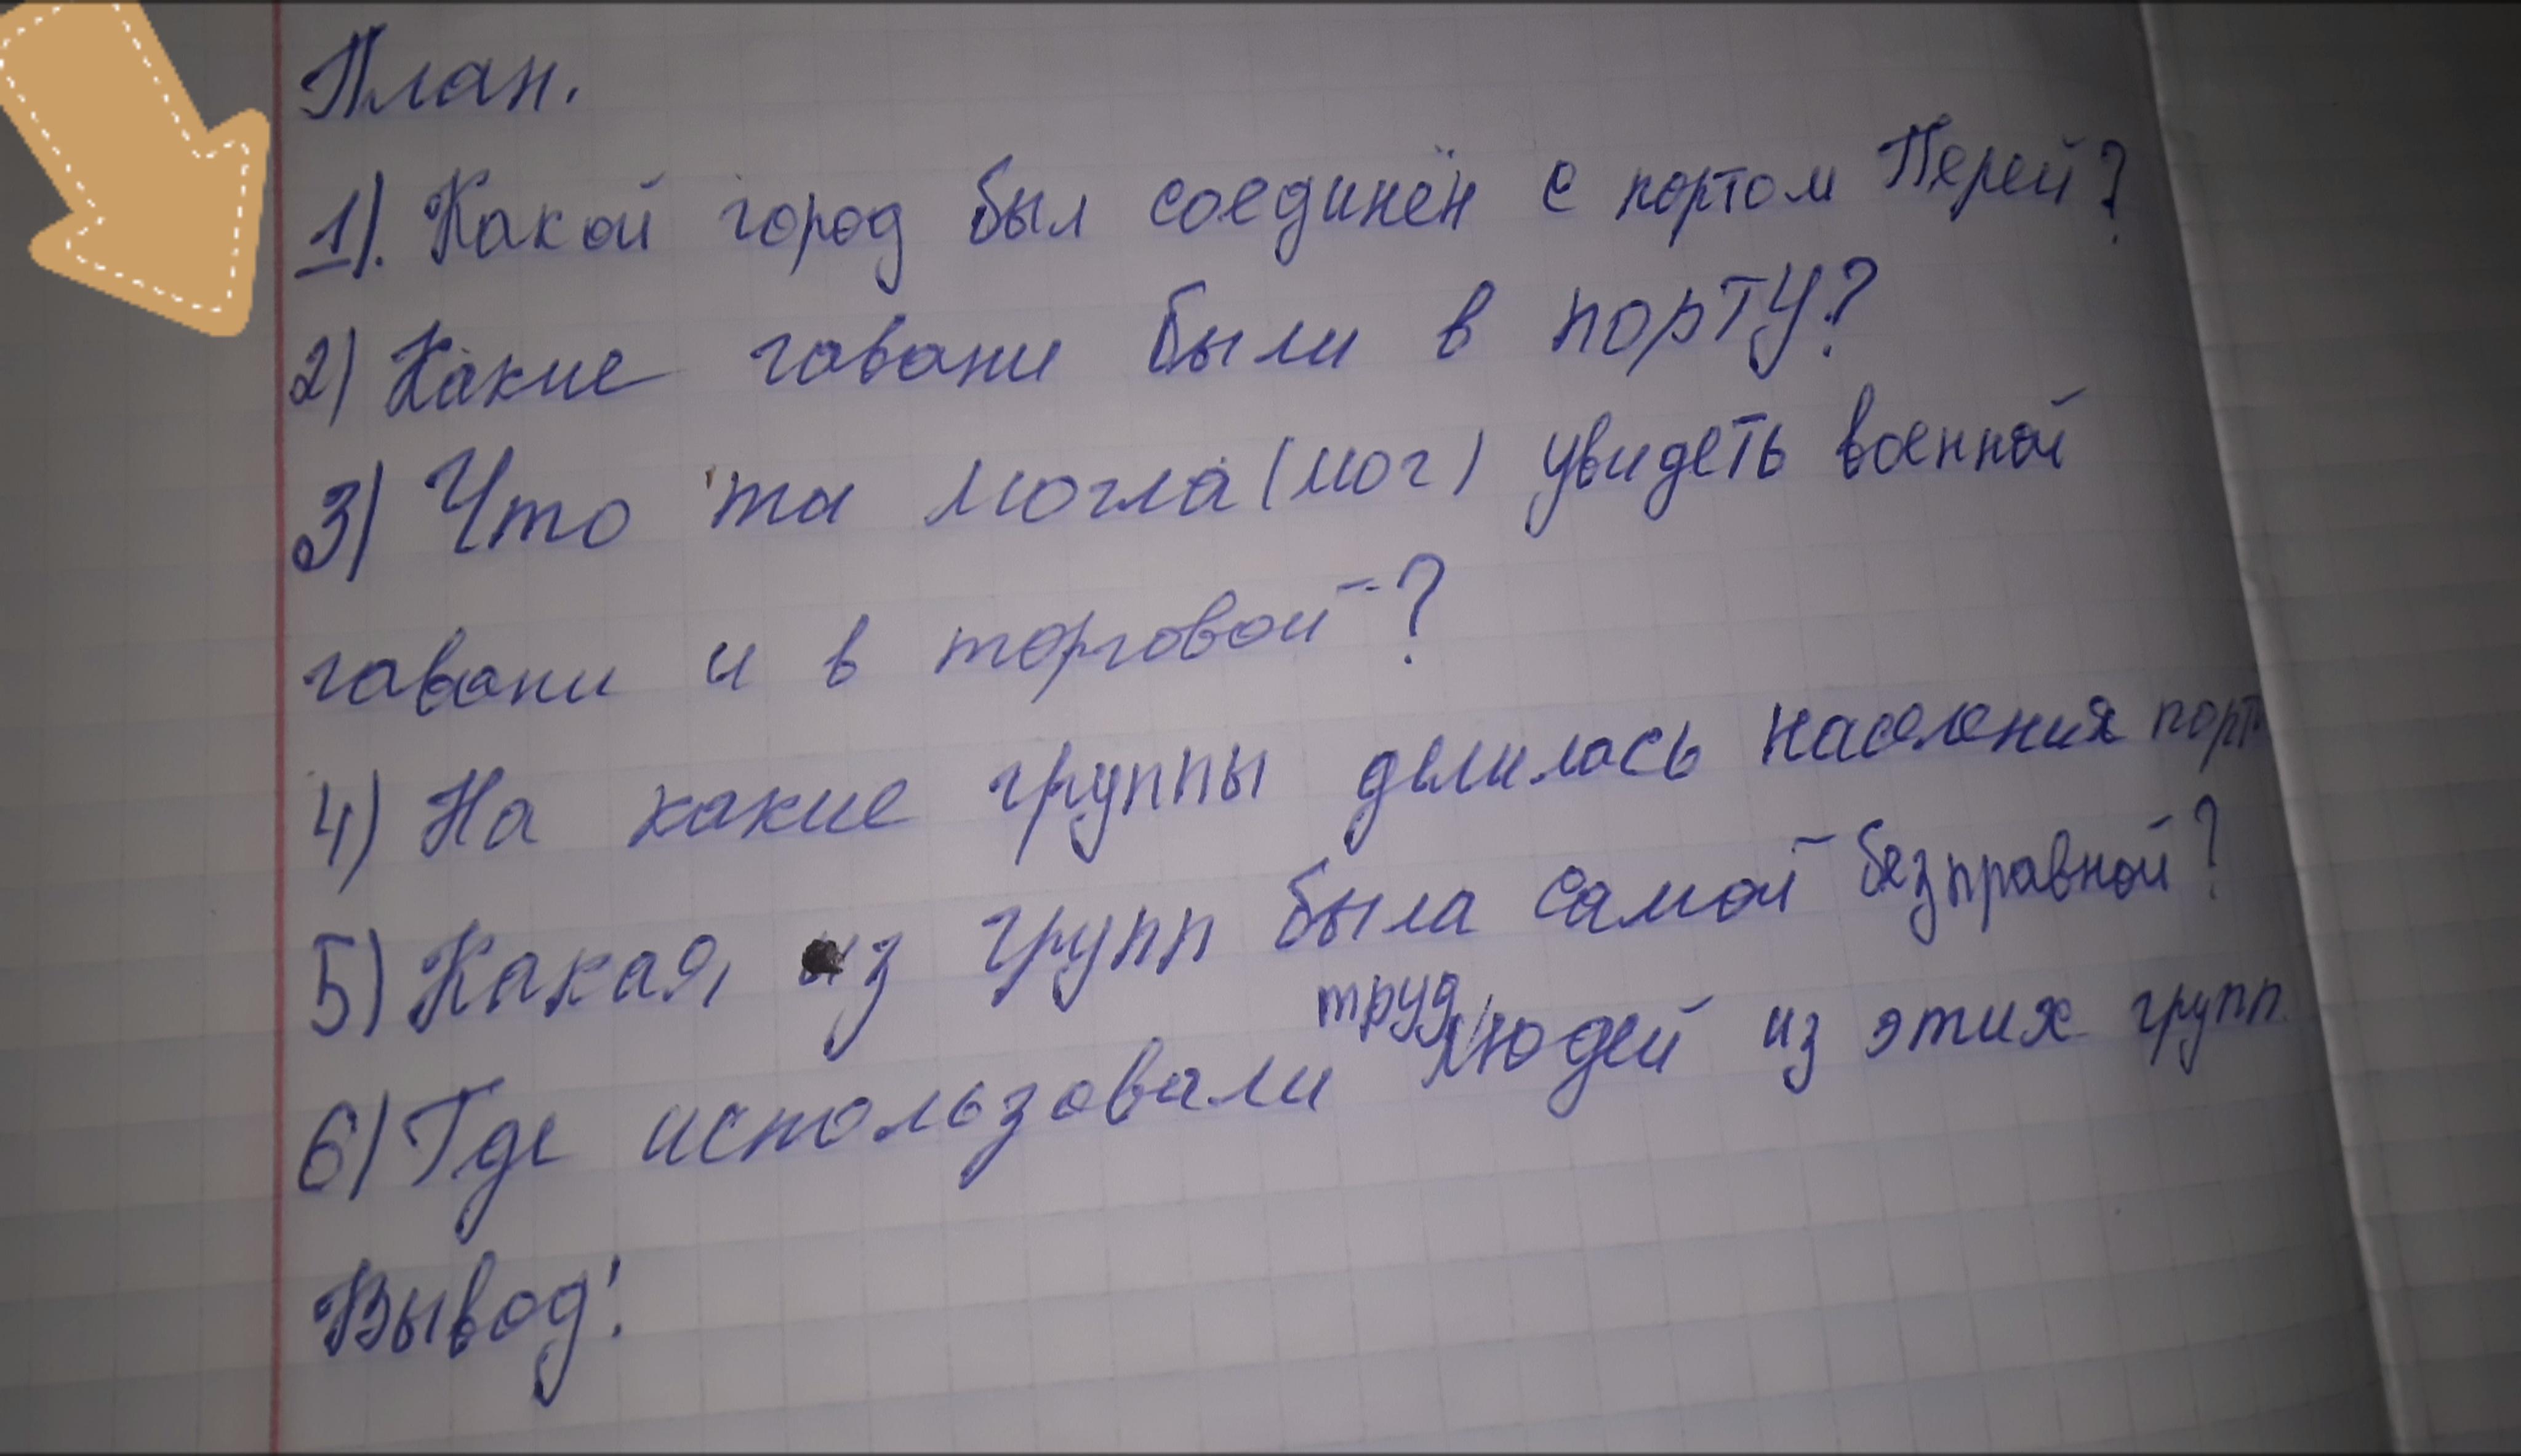 План.
1). Какой город был соединён с портом Перей?
2) Какие гавани были в порту?
3) Что ты могла (мог) увидеть военной
гавани и в торговой?
4) На какие группы делилась населения порт
5) Какая, из групп была самой безправной?
6) Где использовали труд людей из этих групп
Вывод: